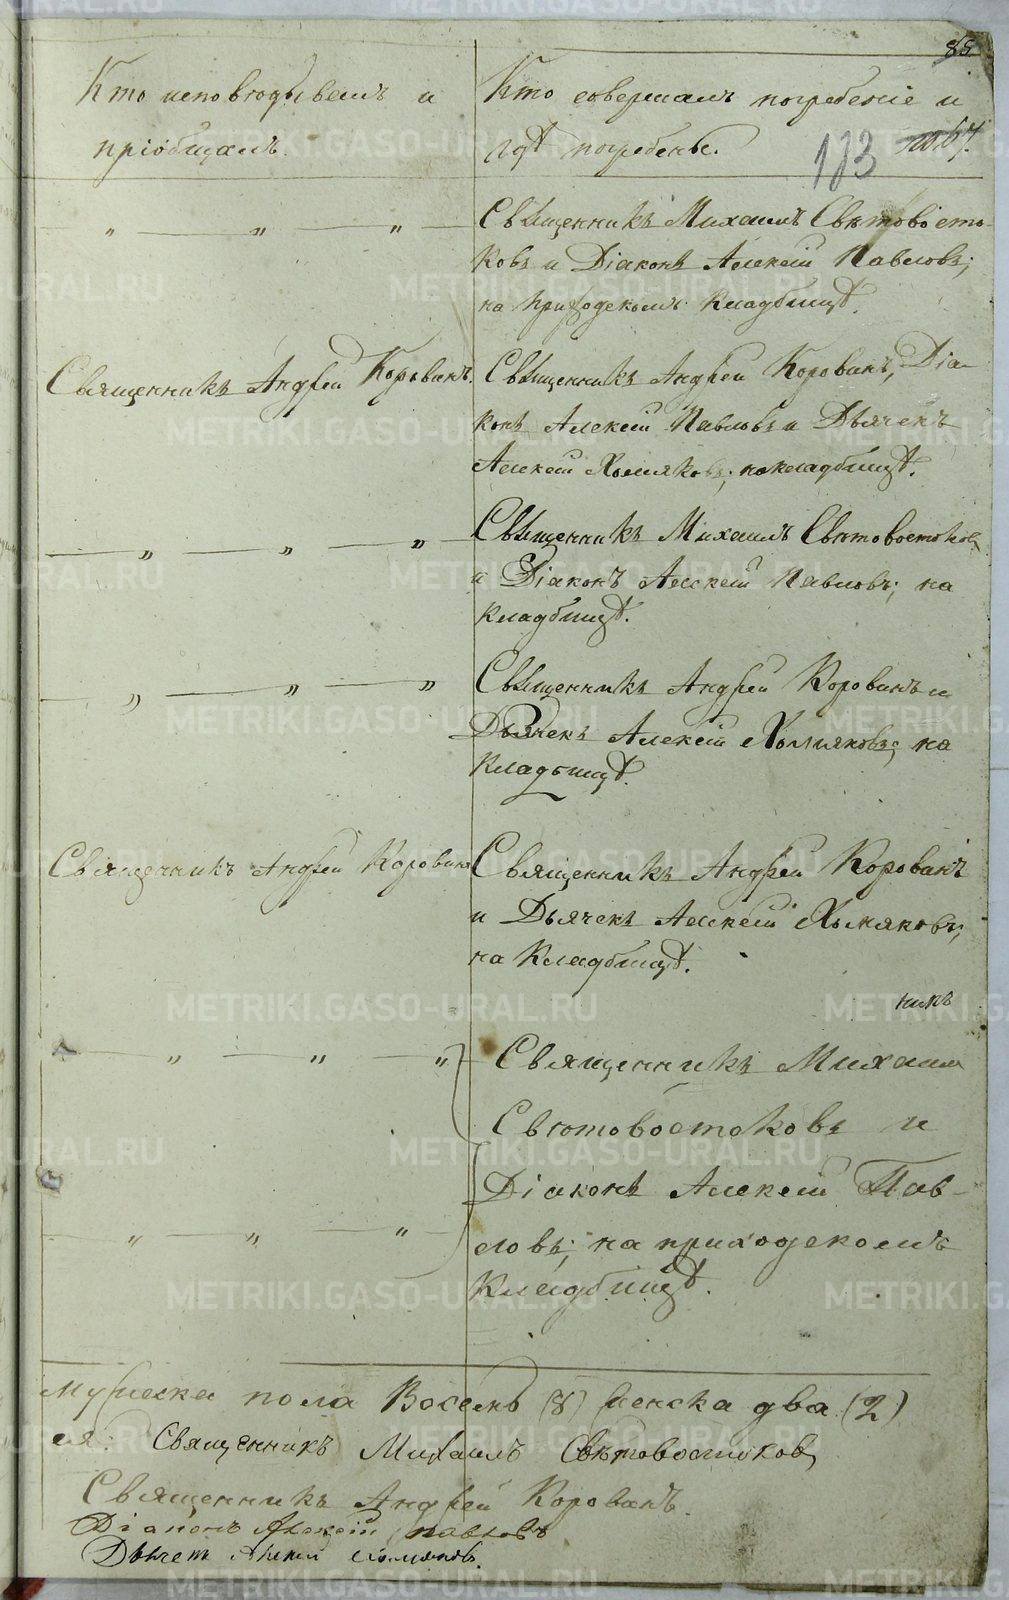 88
Кто исповѣдывалъ и
пріобщалъ.
Кто совершалъ погребеніе и
гдѣ погребены.
173
по 67.
" — " — " —
Священникъ Михаилъ Свѣтовосто-
ковъ и Діаконъ Алексій Павловъ;
на приходскомъ кладбищѣ.
Священникъ Андрей Корованъ.
Священникъ Андрей Корованъ, Діа-
конъ Алексій Павловъ и Дьячекъ
Алексій Хомяковъ; на кладбищѣ.
— " — " — " —
Священникъ Михаилъ Свѣтовостоковъ
и Діаконъ Алексій Павловъ; на
кладбищѣ.
— " — " — "
Священникъ Андрей Корованъ и
Дьячекъ Алексій Хомяковъ; на
кладбищѣ.
Священникъ Андрей Корованъ
Священникъ Андрей Корованъ
и Дьячекъ Алексій Хомяковъ;
на кладбищѣ.
— " — " — "
Священникъ Михаилъ
Свѣтовостоковъ и
Діаконъ Алексій Пав-
ловъ; на приходскомъ
кладбищѣ.
" — " — "
мужеска пола Восемь (8) женска два (2)
ся. Священникъ Михаилъ Свѣтовостоковъ
Священникъ Андрей Корованъ.
Діаконъ Алексій Павловъ
Дьячекъ Алексій Хомяковъ.
METRIKI.GASO-URAL.RU